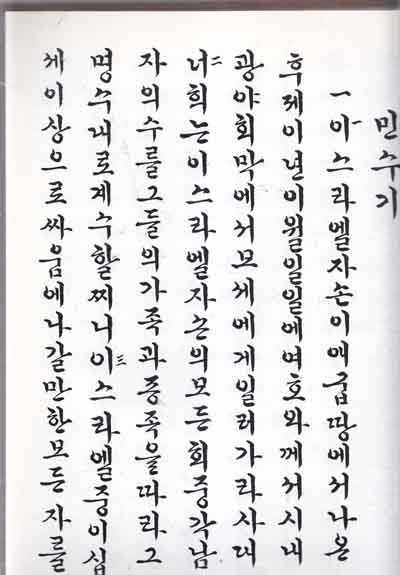 민수기
一 一이스라엘자손이애굽땅에서나온
후제이년이월일일에여호와께서시내
광야회막에서모세에게일러가라사대
二너희는이스라엘자손의모든회중각남
자의수를그들의가족과종족을따라그
명수대로계수할찌니三이스라엘중이십
세이상으로싸움에나갈만한모든자를